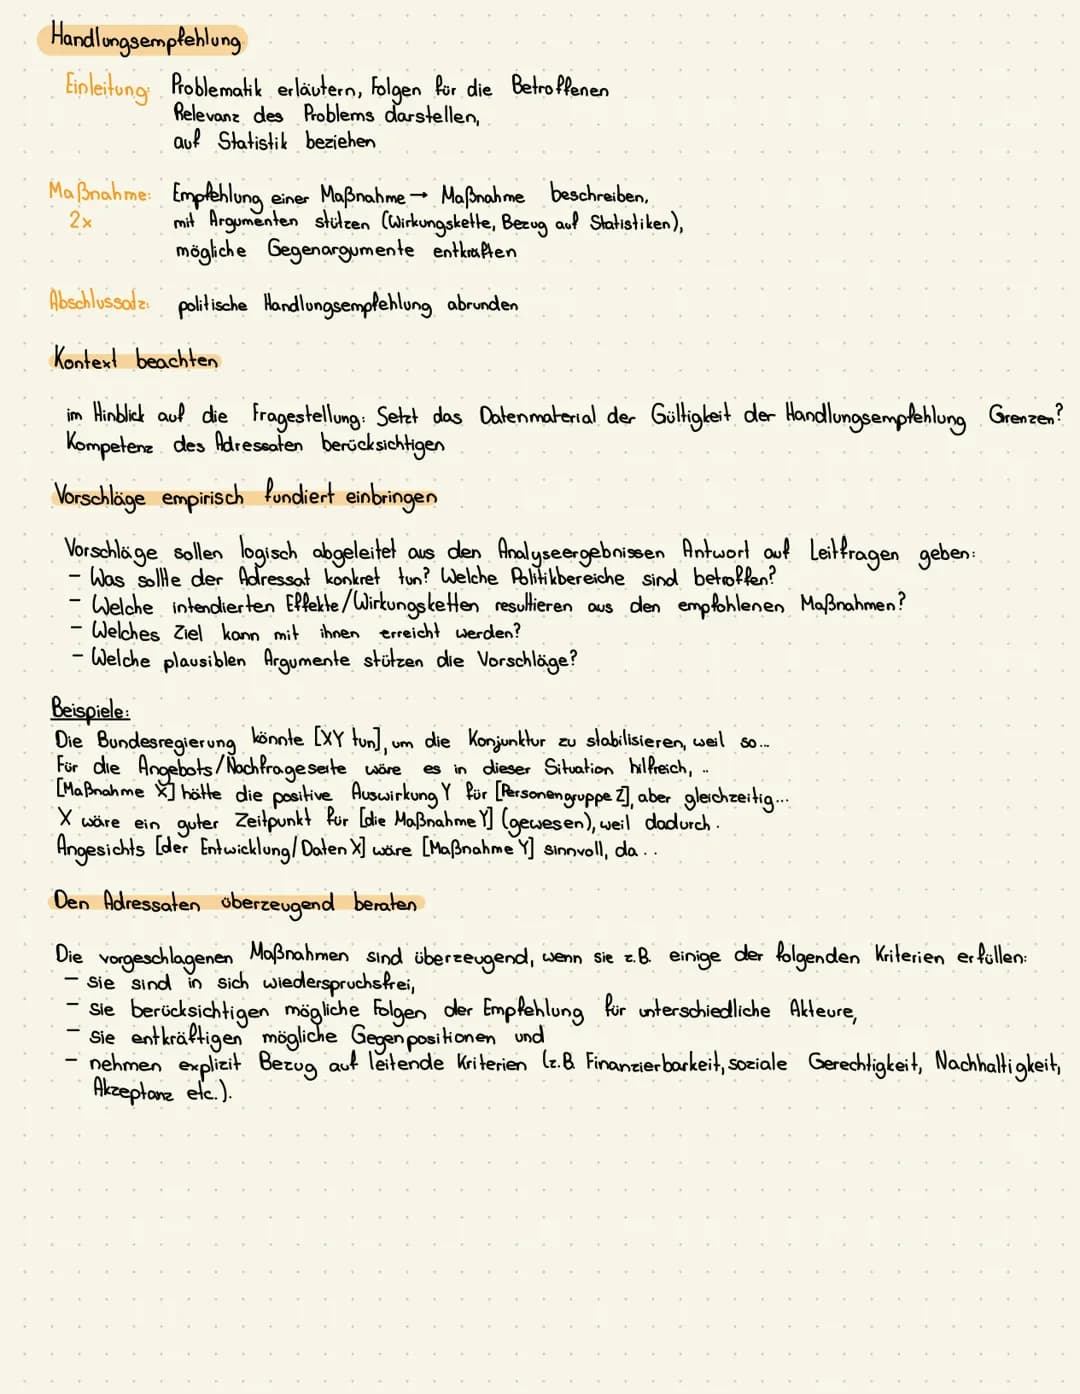 Handlungsempfehlung
Einleitung: Problematik erläutern, Folgen für die Betroffenen
Relevanz des Problems darstellen,
auf Statistik beziehen
Maßnahme: Empfehlung einer Maßnahme → Maßnahme beschreiben,
2x mit Argumenten stützen (Wirkungskette, Bezug auf Statistiken),
mögliche Gegenargumente entkräften
Abschlussatz: politische Handlungsempfehlung abrunden
Kontext beachten
im Hinblick auf die Fragestellung: Setzt das Datenmaterial der Gültigkeit der Handlungsempfehlung Grenzen?
Kompetenz des Adressaten berücksichtigen
Vorschläge empirisch fundiert einbringen
Vorschläge sollen logisch abgeleitet aus den Analyseergebnissen Antwort auf Leitfragen geben:
- Was sollte der Adressat konkret tun? Welche Politikbereiche sind betroffen?
- Welche intendierten Effekte/Wirkungsketten resultieren aus den empfohlenen Maßnahmen?
- Welches Ziel kann mit ihnen erreicht werden?
- Welche plausiblen Argumente stützen die Vorschläge?
Beispiele:
Die Bundesregierung könnte [XY tun], um die Konjunktur zu stabilisieren, weil so...
Für die Angebots/Nachfrageseite wäre es in dieser Situation hilfreich, ..
[Maßnahme X] hätte die positive Auswirkung Y für [Personengruppe Z], aber gleichzeitig...
X wäre ein guter Zeitpunkt für [die Maßnahme Y] (gewesen), weil dadurch.
Angesichts [der Entwicklung/Daten X] wäre [Maßnahme Y] sinnvoll, da..
Den Adressaten überzeugend beraten
Die vorgeschlagenen Maßnahmen sind überzeugend, wenn sie z.B. einige der folgenden Kriterien erfüllen:
- sie sind in sich wiederspruchsfrei,
- sie berücksichtigen mögliche Folgen der Empfehlung für unterschiedliche Akteure,
- sie entkräftigen mögliche Gegenpositionen und
- nehmen explizit Bezug auf leitende Kriterien (z.B Finanzierbarkeit, soziale Gerechtigkeit, Nachhaltigkeit,
Akzeptanz etc.).